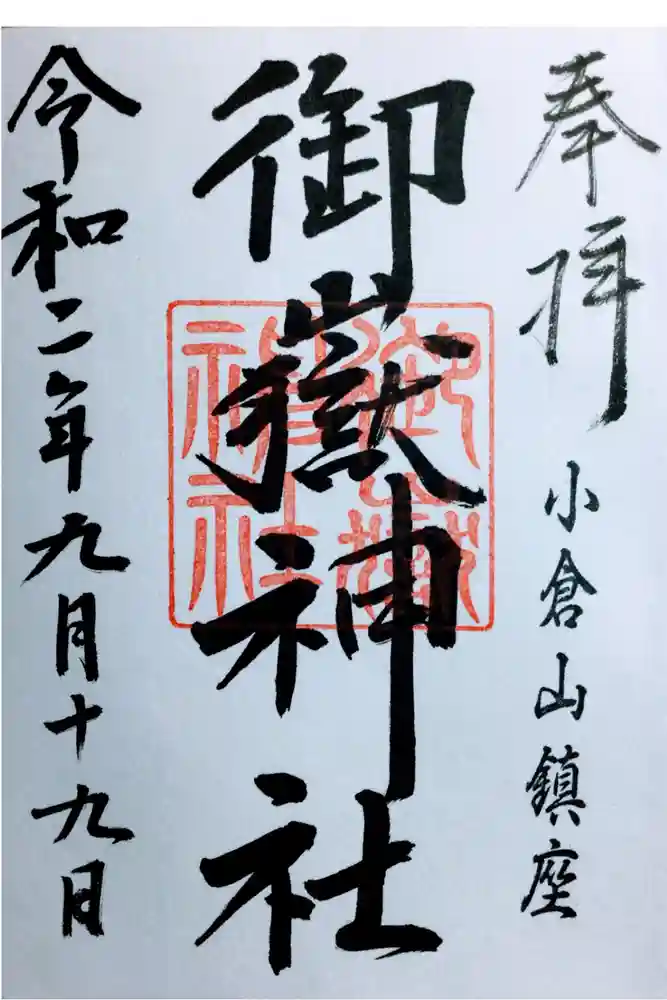 奉拝
小倉山鎮座
御嶽神社
御嶽
神社
令和二年九月十九日